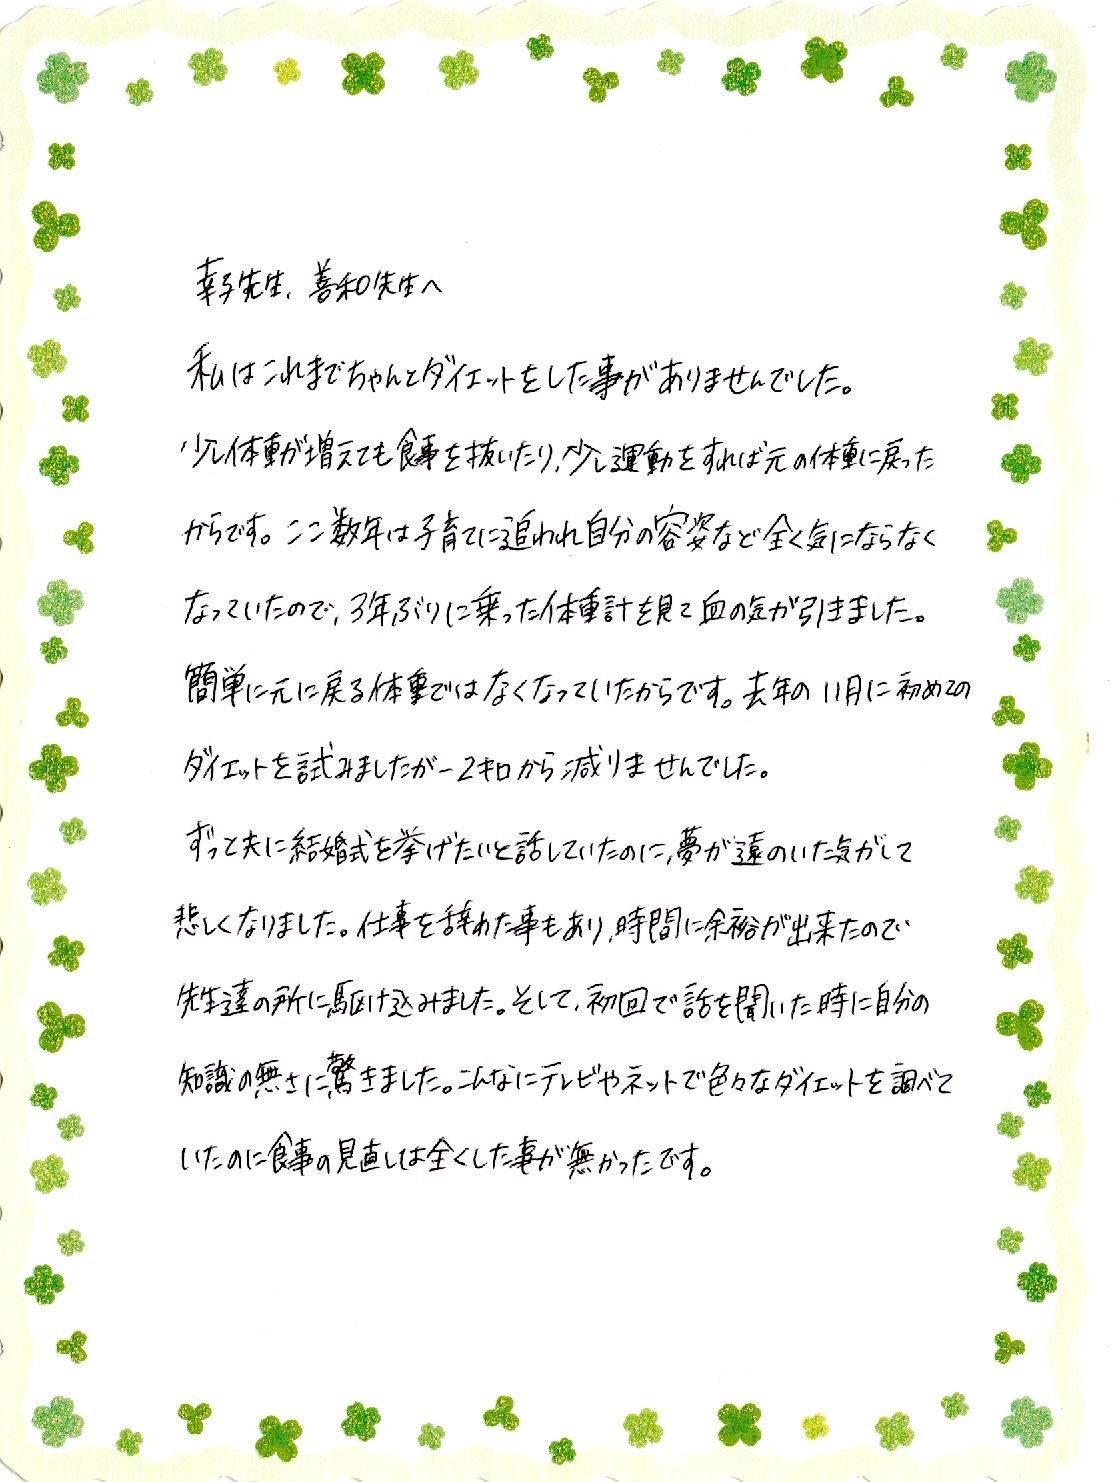 幸子先生、善和先生へ
私はこれまでちゃんとダイエットをした事がありませんでした。
少し体重が増えても食事を抜いたり、少し運動をすれば元の体重に戻った
からです。ここ数年は子育てに追われ自分の容姿など全く気にならなく
なっていたので、3年ぶりに乗った体重計を見て血の気が引きました。
簡単に元に戻る体重ではなくなっていたからです。去年の11月に初めての
ダイエットを試みましたが−2キロから減りませんでした。
ずっと夫に結婚式を挙げたいと話していたのに、夢が遠のいた気がして
悲しくなりました。仕事を辞めた事もあり、時間に余裕が出来たので
先生達の所に駆け込みました。そして、初回で話を聞いた時に自分の
知識の無さに驚きました。こんなにテレビやネットで色々なダイエットを調べて
いたのに食事の見直しは全くした事が無かったです。